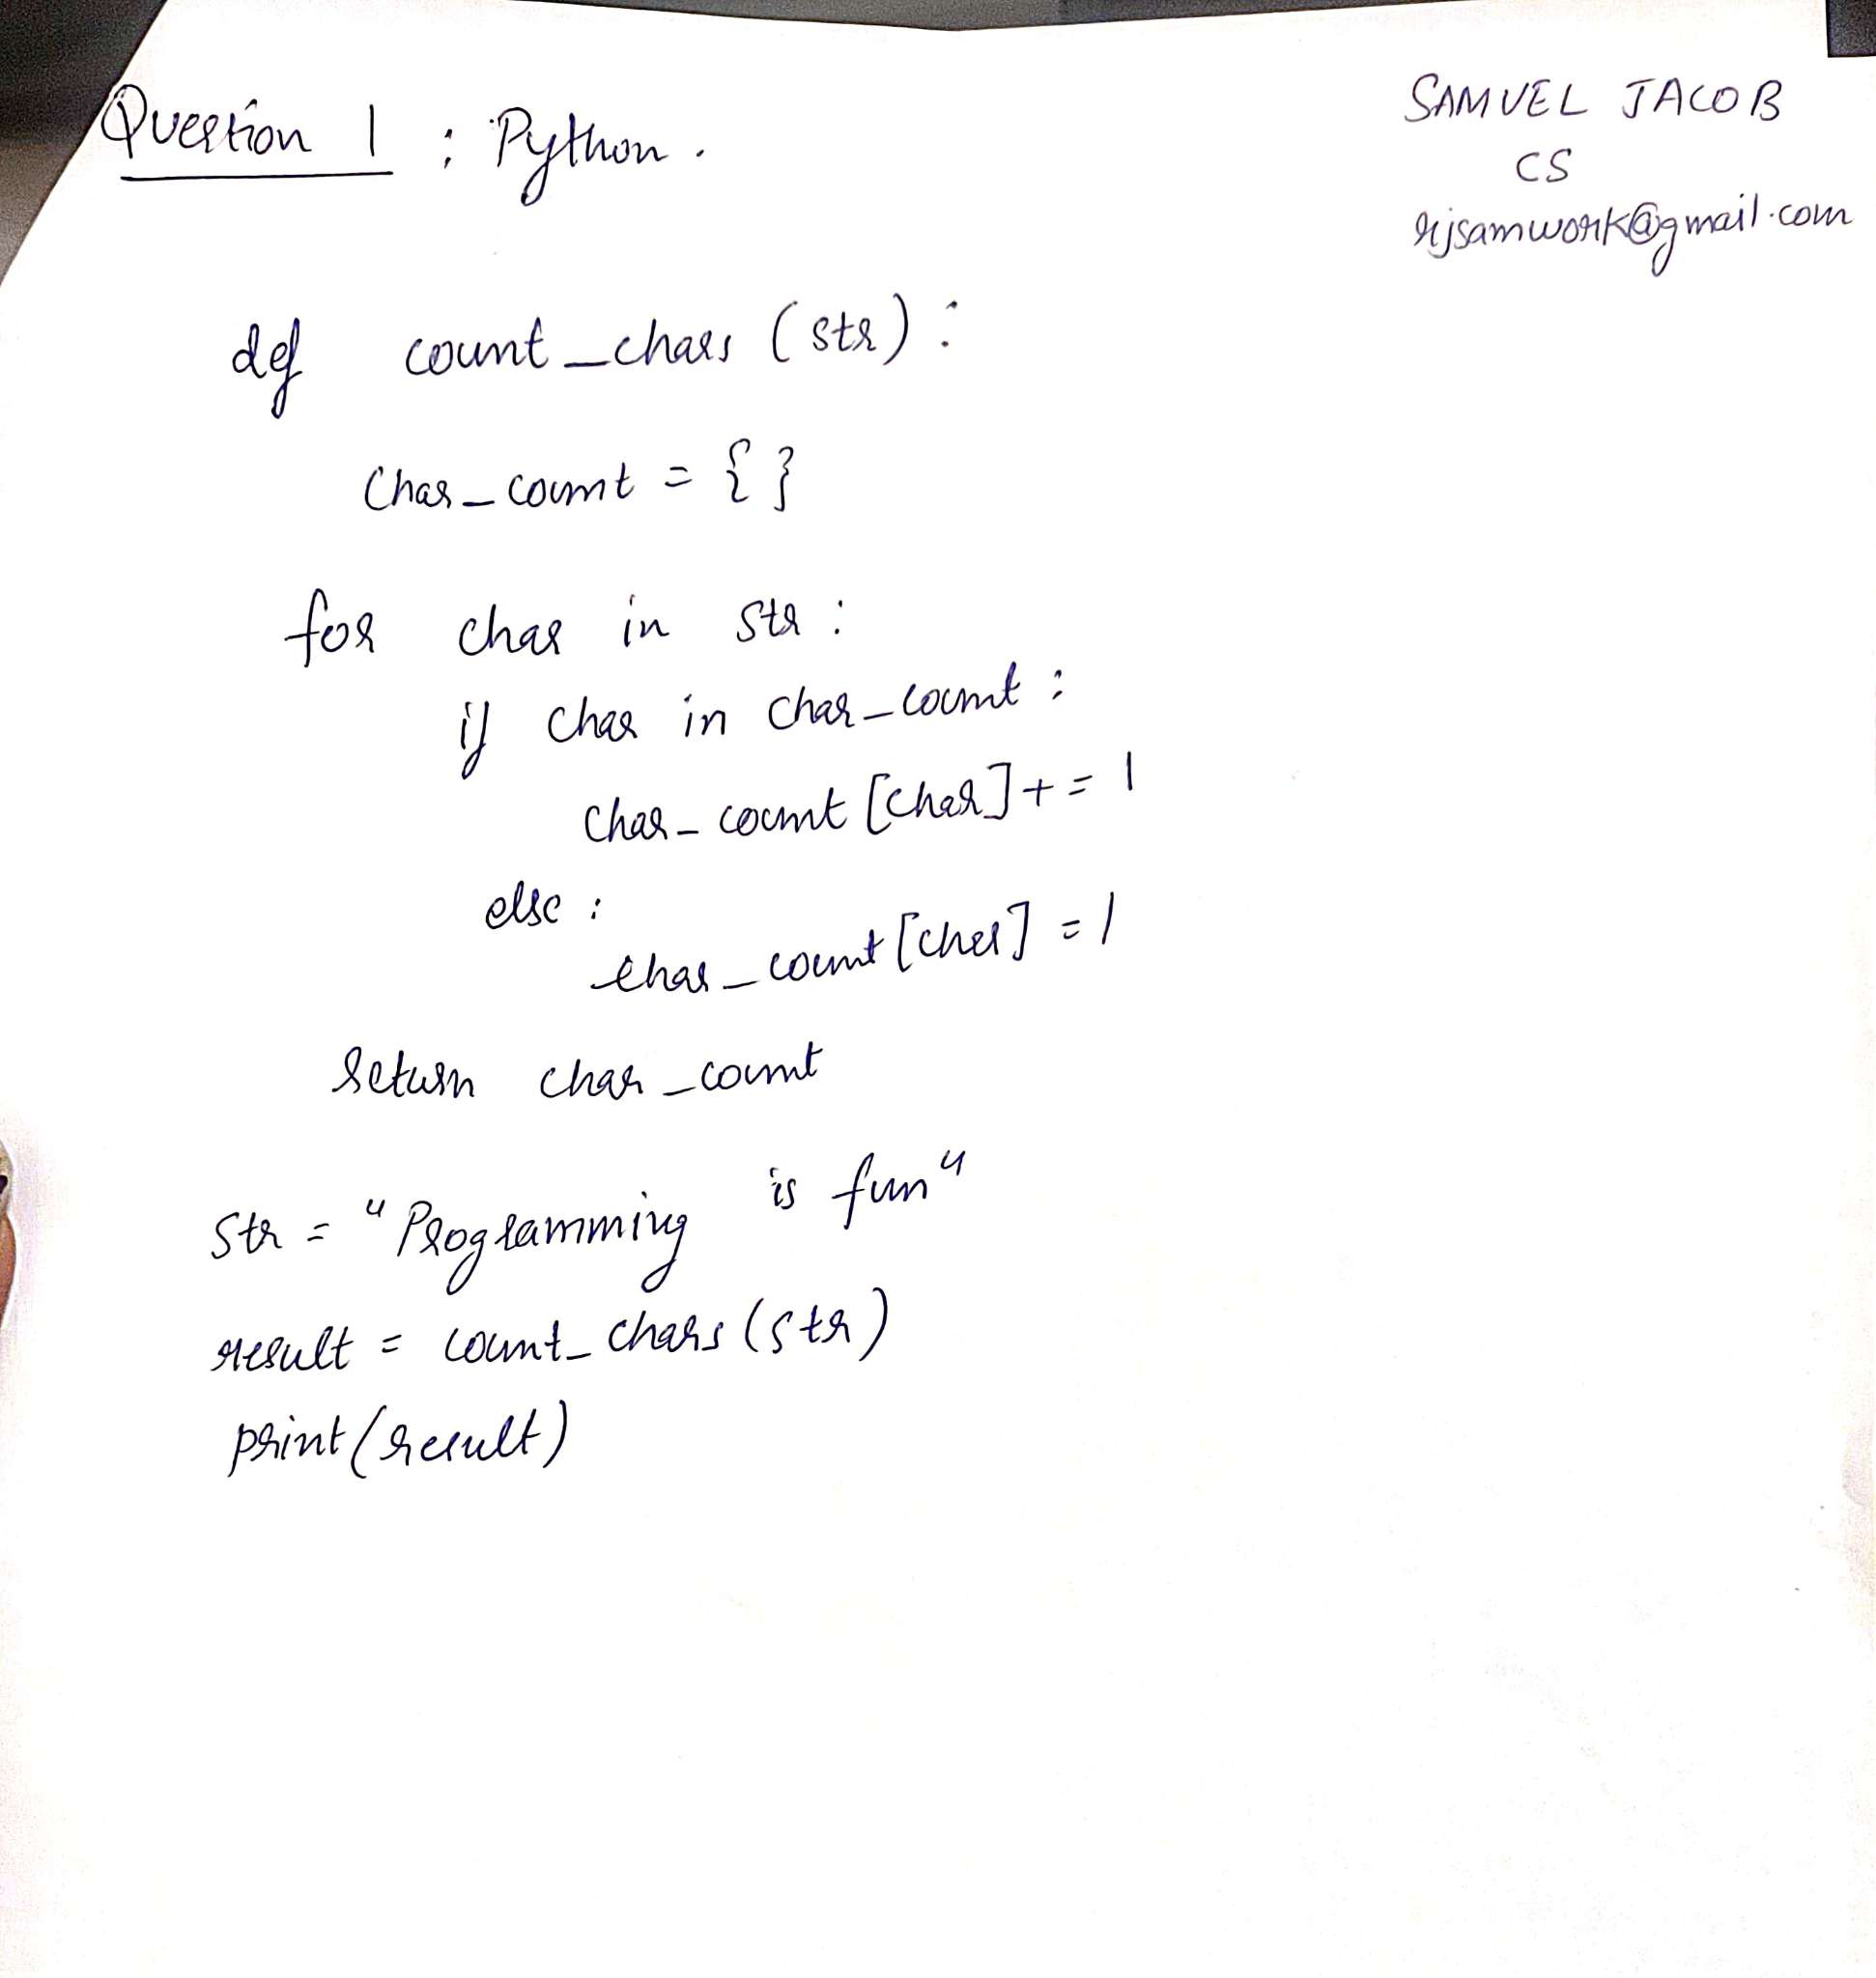 Question 1 : Python.
SAMUEL JACOB
CS
rijsamwork@gmail.com
def count_chars (str) :
char_count = { }
for char in str :
if char in char_count :
char_count [char] += 1
else :
char_count [char] = 1
return char_count
str = "Programming is fun"
result = count_chars (str)
print (result)